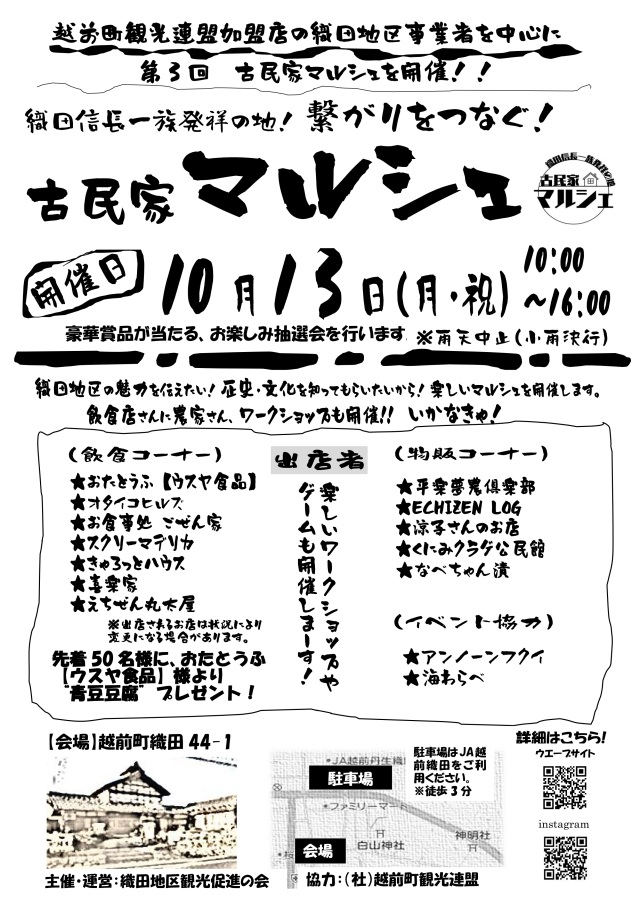 越前町観光連盟加盟店の織田地区事業者を中心に
第3回 古民家マルシェを開催！！
織田信長一族発祥の地！ 繋がりをつなぐ！
古民家マルシェ
織田信長一族発祥の地
古民家
マルシェ
開催日 10月13日(月・祝) 10:00
～16:00
豪華賞品が当たる、お楽しみ抽選会を行います ※雨天中止(小雨決行)
織田地区の魅力を伝えたい！歴史・文化を知ってもらいたいから！楽しいマルシェを開催します。
飲食店さんに農家さん、ワークショップも開催!! いかなきゃ！
出店者
(飲食コーナー)
★おたとうふ【ウスヤ食品】
★オタイコヒルズ
★お食事処 ごぜん家
★スクリーマデリカ
★きゃろっとハウス
★喜楽家
★えちぜん丸太屋
※出店されるお店は状況により
変更になる場合があります。
先着50名様に、おたとうふ
【ウスヤ食品】様より
"青豆豆腐" プレゼント！
楽しいワークショップや
ゲームも開催しまーす！
(物販コーナー)
★平楽夢農倶楽部
★ECHIZEN LOG
★涼子さんのお店
★くにみクラゲ公民館
★なべちゃん漬
(イベント協力)
★アンノーンフクイ
★海わらべ
【会場】越前町織田44-1
主催・運営：織田地区観光促進の会
JA越前丹生織
駐車場
ファミリーマー
白山神社
神明社
会場
駐車場はJA越
前織田をご利
用ください。
※徒歩3分
協力：(社)越前町観光連盟
詳細はこちら！
ウエーブサイト
instagram